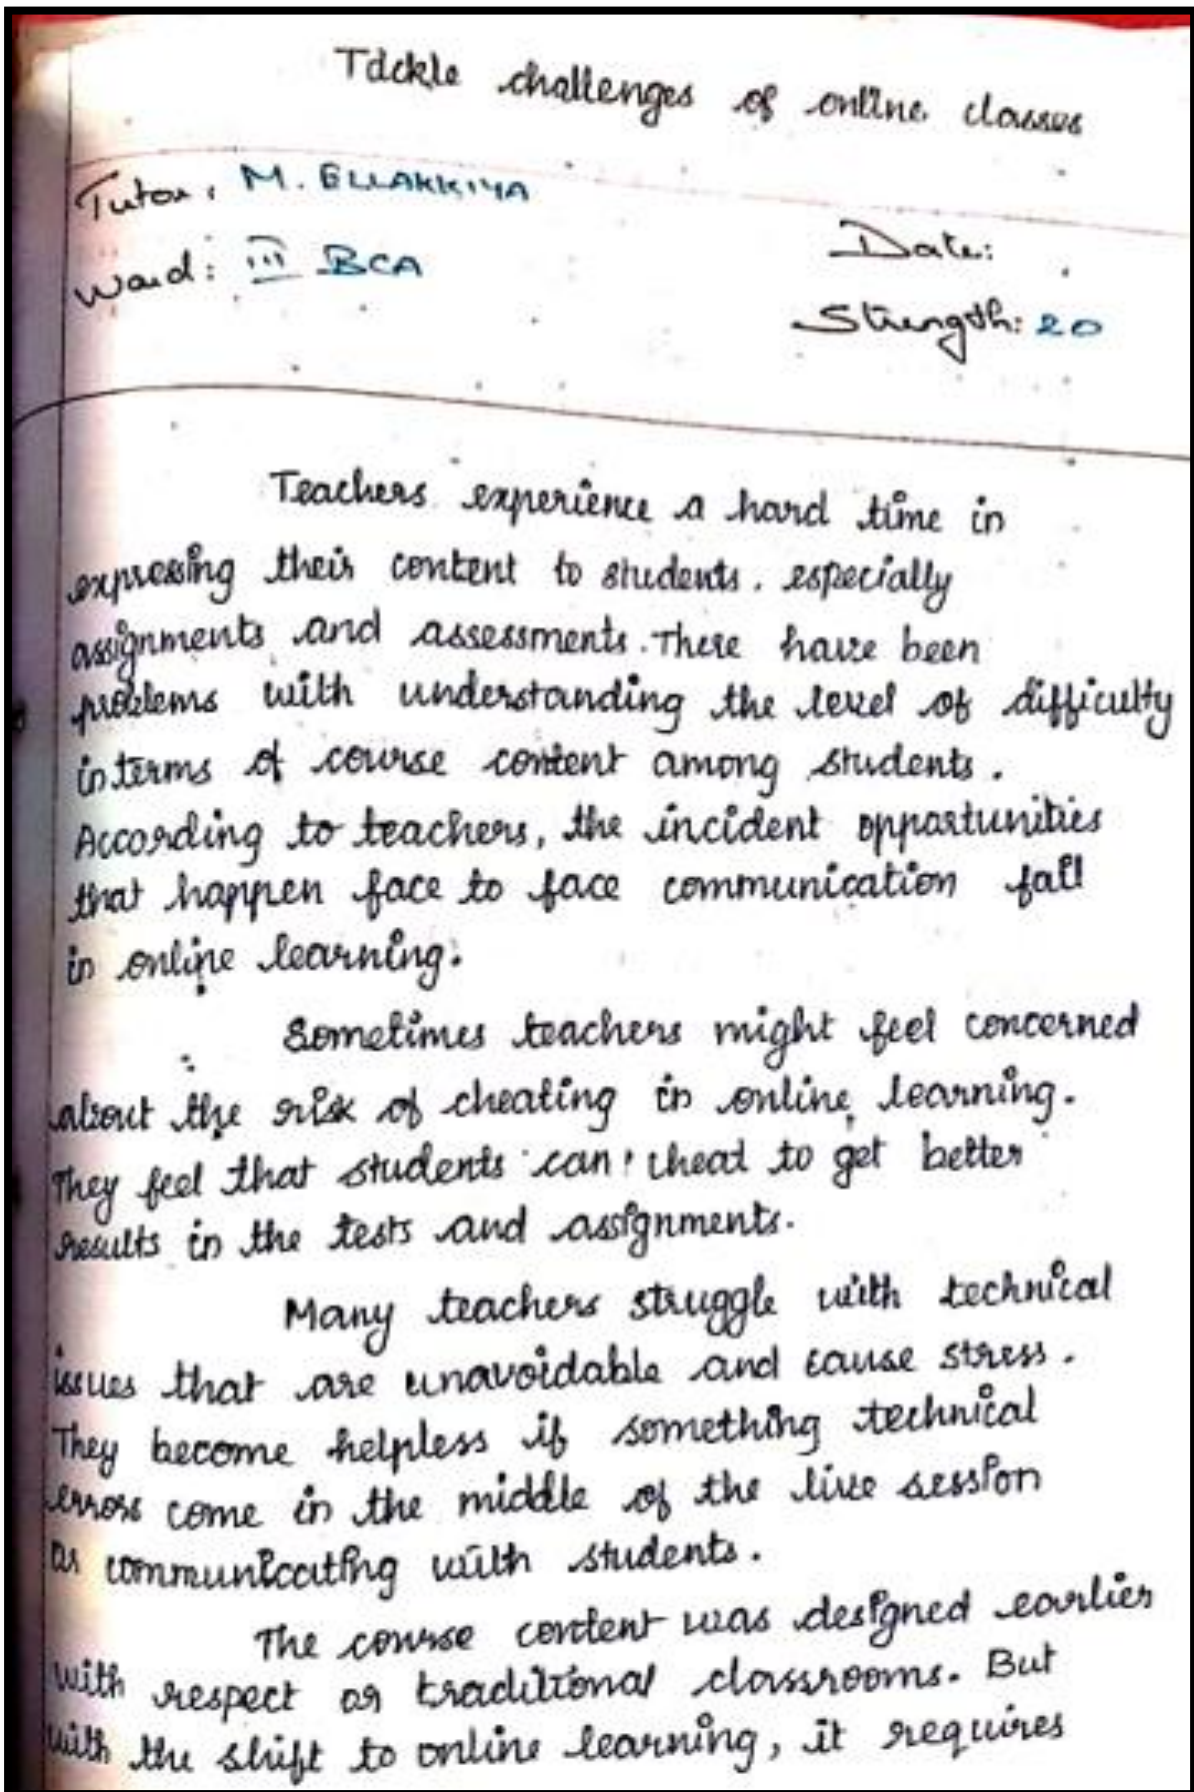 Tackle challenges of online classes
Tutor: M. ELLAKKIYA
Date:
Ward: III BCA
Strength: 20
Teachers experience a hard time in
expressing their content to students. especially
assignments and assessments. There have been
problems with understanding the level of difficulty
in terms of course content among students.
According to teachers, the incident opportunities
that happen face to face communication fall
in online learning.
Sometimes teachers might feel concerned
about the risk of cheating in online learning.
They feel that students can cheat to get better
results in the tests and assignments.
Many teachers struggle with technical
issues that are unavoidable and cause stress.
They become helpless if something technical
errors come in the middle of the live session
or communicating with students.
The course content was designed earlier
with respect or traditional classrooms. But
with the shift to online learning, it requires